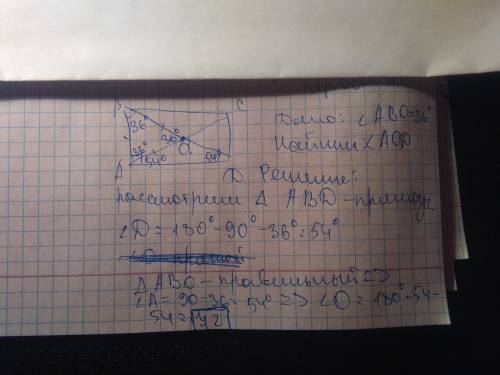 B C
36°
O
36° 54° 54°
A D
Дано: ∠ABO=36°
Найти: ∠AOD
Решение:
рассмотрим Δ ABD - прямоуг
∠D = 180°-90°-36°=54°
Δ ABO - правильный =>
∠A = 90-36= 54° => ∠O = 180°-54-
54=72